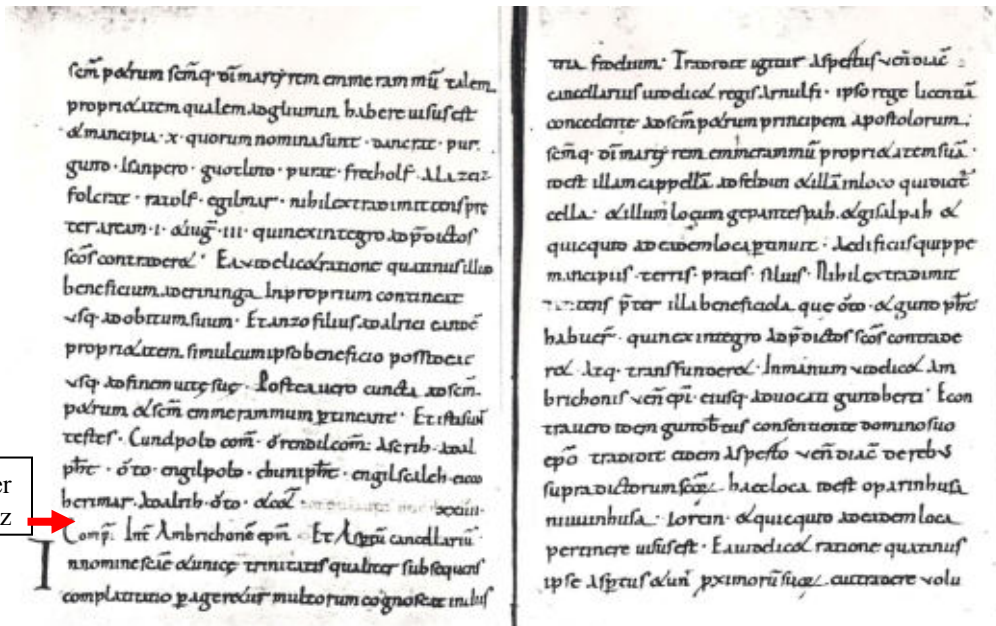 scm petrum scmq. di martyrem emmerammū talem
proprietatem qualem ad glumun habere uisus est
& mancipia · x · quorum nomina sunt · dancrat · pur.
gund · Isanpero · guotlind · purat · frecholf · Alazaiz
folcrat · ratolf · egilmar · nihil extra dimittens pre
ter aream · i · & iug · iii · quin ex integro ad p̄dictos
scōs contraderet · Ea uidelicet ratione quatinus illud
beneficium ad erininga In proprium contineat
usq. ad obitum suum · Et anzo filius adalrici eandē
proprietatem simul cum ipso beneficio possideat
usq. ad finem uitę suę · Postea uero cuncta ad scm.
petrum & scm emmerammum ptineant · Et isti sun
testes · Cundpold com · ortendil com · Aserih · adal
pht · oto · engilpold · chunipht · engilscalch
herimar · adalrih · oto · & cet · xxiiii ·
Comp. Int Ambrichonē epm · Et Aspertū cancellariū
In nomine scē & unicę trinitatis qualiter subsequens
complacitatio p ageretur multorum cognoscat industria
fiendum. Tradidit igitur Aspertus uen diac
cancellarius uidelicet regis Arnulfi · ipso rege licentiā
concedente ad scm petrum principem apostolorum.
scmq. di martyrem emmerammū proprietatem suā ·
id est illam cappellā ad feldun & illā in loco qui dicit
cella · & illum locum gepantespah · & gisalpah &
quicquid ad eadem loca ptinuit · Aedificiis quippe
mancipiis · terris · pratis · siluis · Nihil extra dimit
tens p̄ter illa beneficiola que oto · & gund pht
habuer · quin ex integro ad p̄dictos scōs contrade
ret atq. transfunderet · In manum uidelicet Am
brichonis uen epi · eiusq. aduocati gundberti · Econ
tra uero idem gundbtus consentiente domino suo
epō tradidit eidem Asperto uen diac de rebus
supradictorum scōz · haec loca id est oparinhusa
niuuinhusa · Lorcin · & quicquid ad eadem loca
pertinere uisus est · Ea uidelicet ratione quatinus
ipse Aspertus & un pximorū suoz cui tradere uolu
er
z